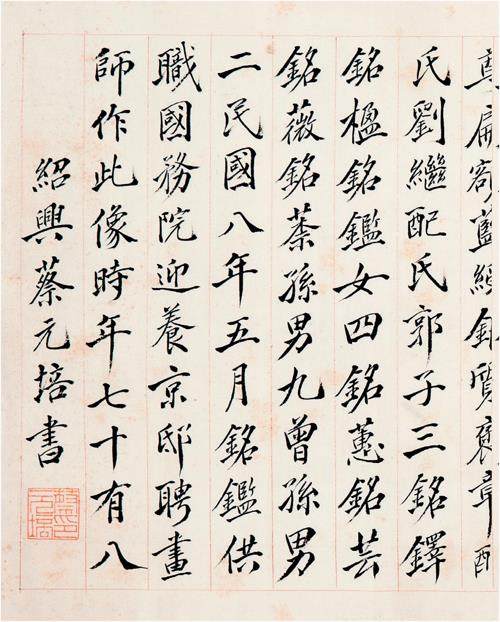 扁額藍綬銀質褒章配
氏劉繼配氏郭子三銘鐸
銘楹銘鑑女四銘蕙銘芸
銘薇銘蓁孫男九曾孫男
二民國八年五月銘鑑供
職國務院迎養京邸聘畫
師作此像時年七十有八
紹興蔡元培書